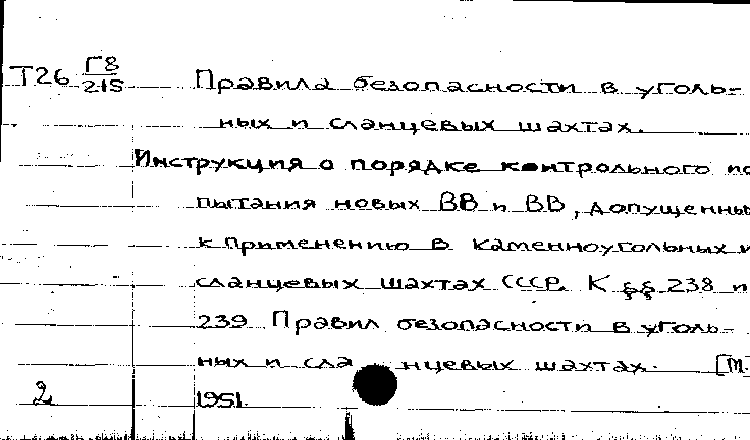 Т26 Г8/215 Правила безопасности в уголь-
ных и сланцевых шахтах.
Инструкция о порядке контрольного
пытания новых ВВ и ВВ, допущенны
к применению в каменноугольных и
сланцевых шахтах СССР. К §§ 238 и
239 Правил безопасности в уголь-
ных и сланцевых шахтах. [М.
2 1951.